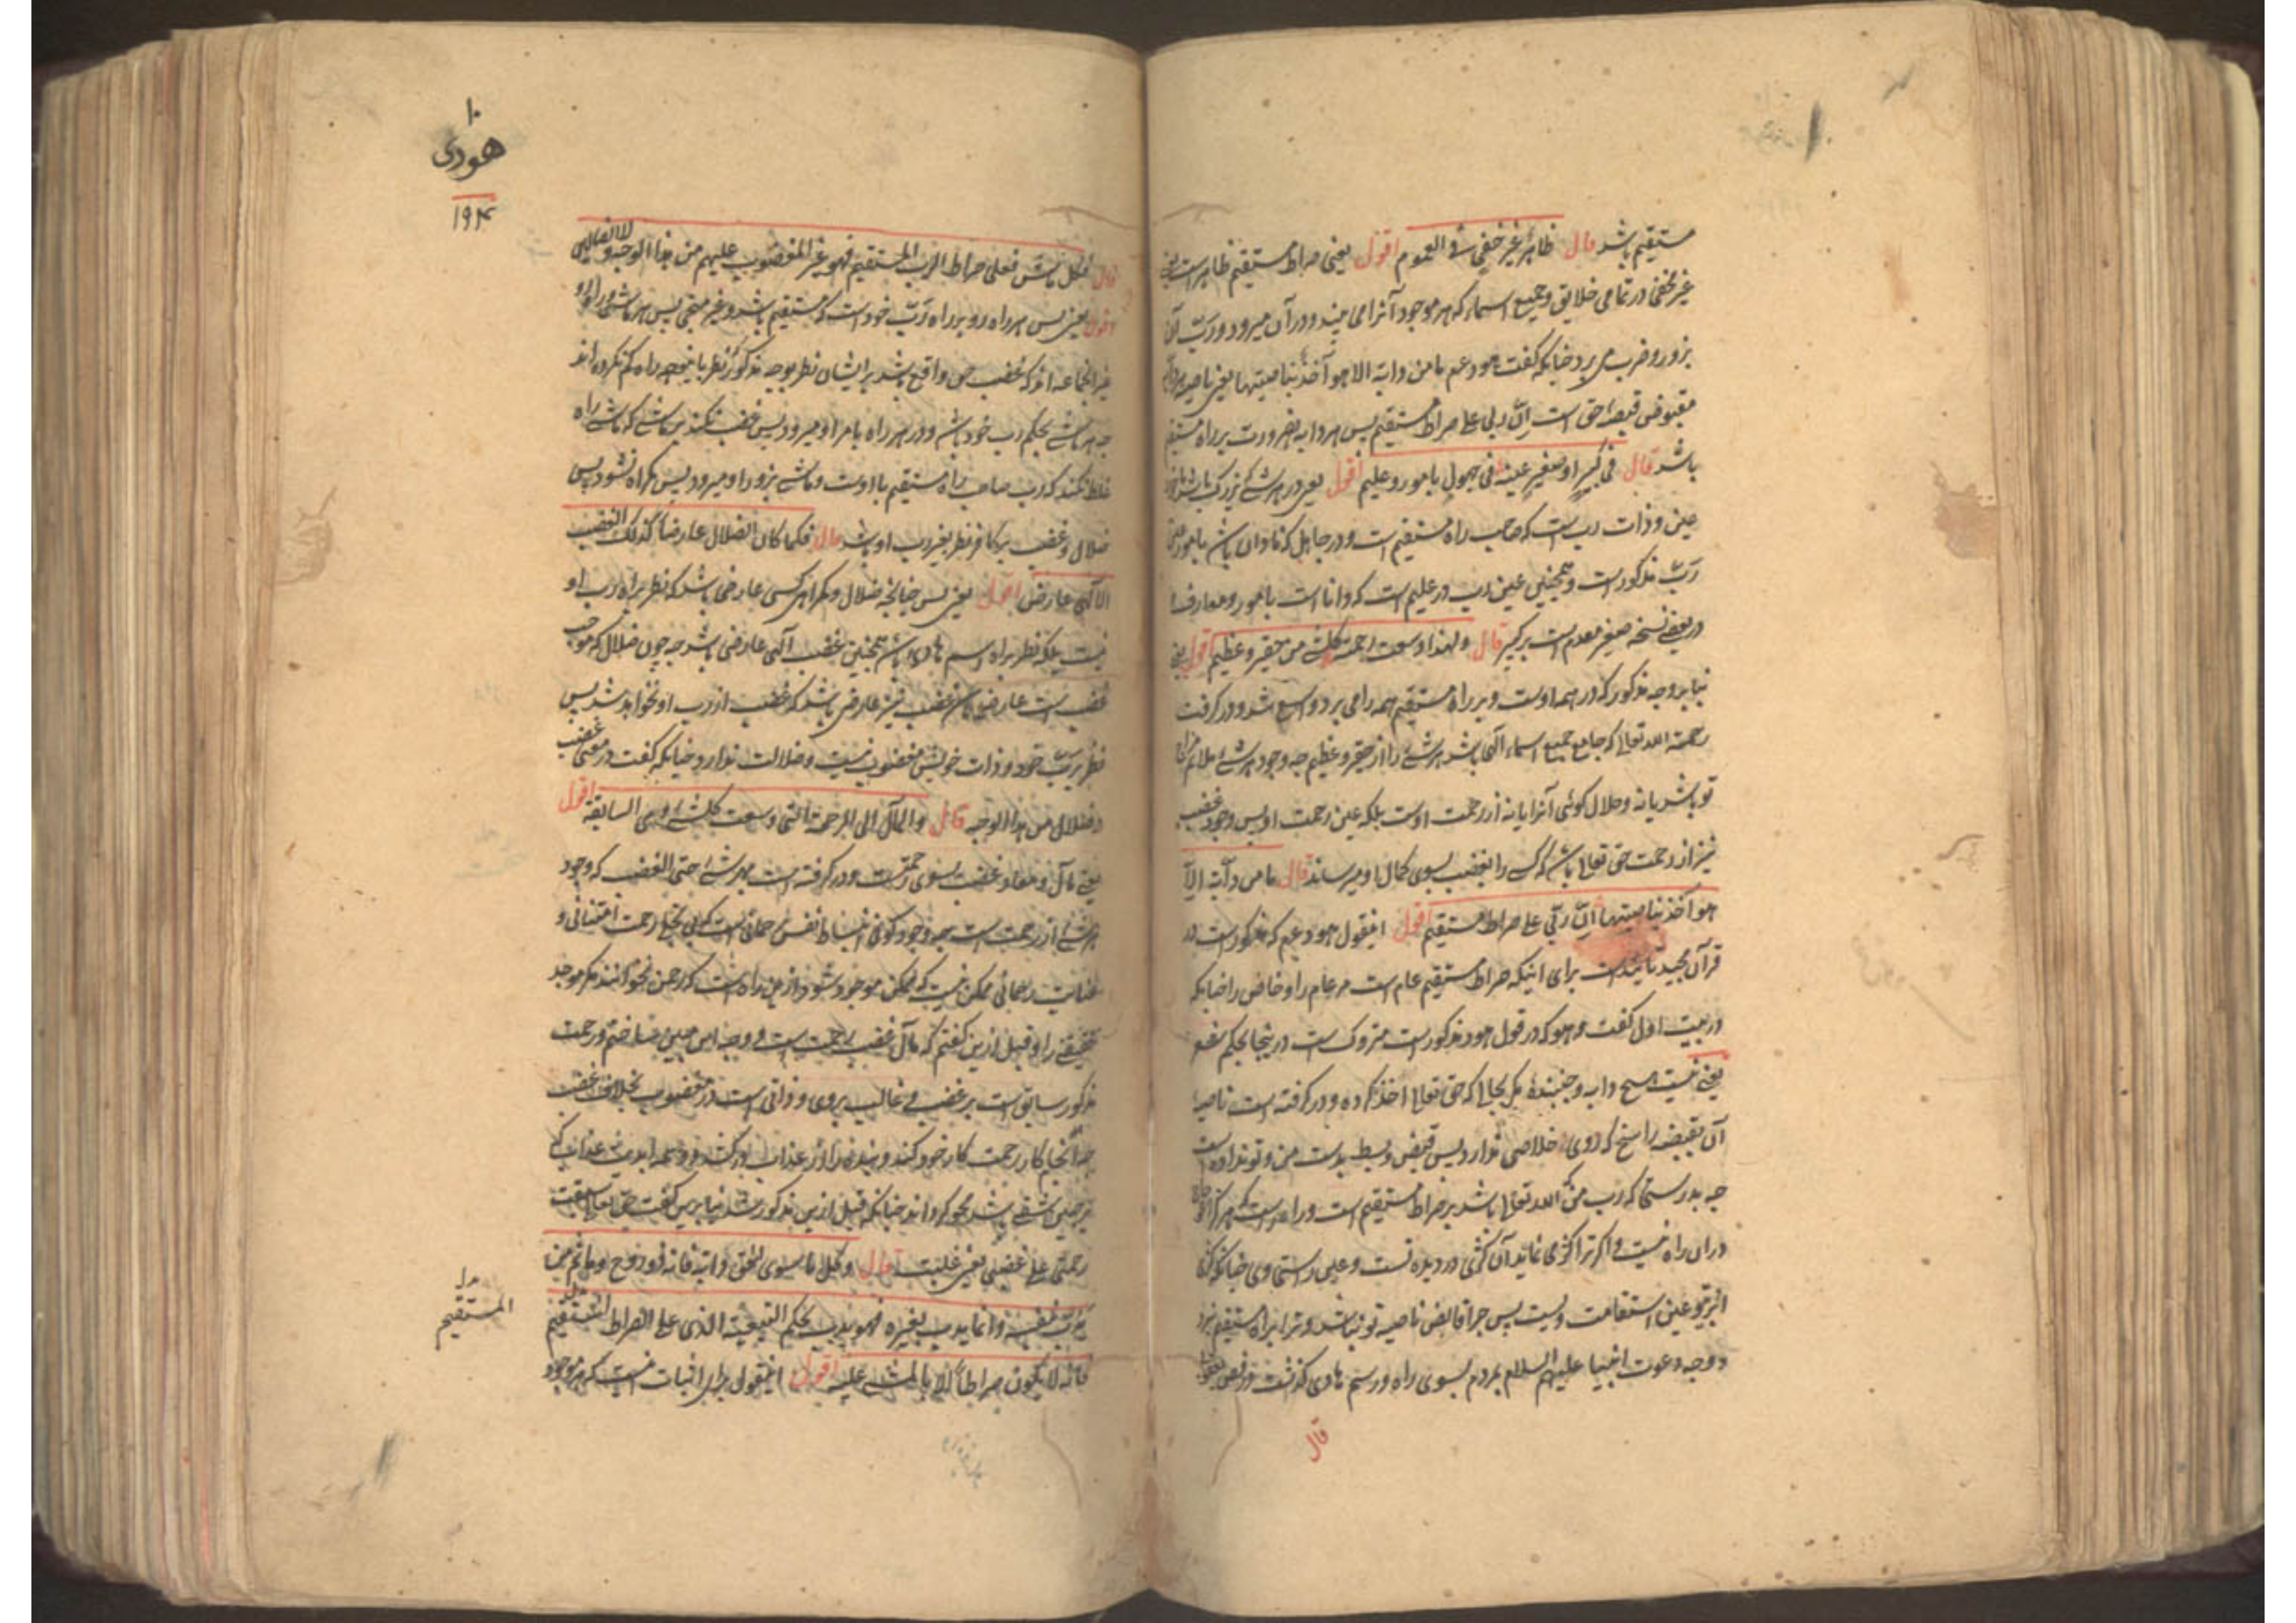 مستقیم باشد قال ظاهر غیر خفی فی العموم اقول یعنی صراط مستقیم ظاهر است یعنی
غیر مخفی در تمامی خلایق و جمیع اسماء که هر موجود آنرا می بیند و در آن میرود و رب آن
بزور و ضرب می برد چنانکه گفت هود عم ما من دابة الا هو آخذ بناصیتها یعنی ناصیه هر دابه
مقبوض قبضهٔ حق است ان ربی علی صراط مستقیم پس هر دابه بضرورت بر راه مستقیم
باشد قال فی کبیر او صغیر عینه فی جهول بامور و علیم اقول یعنی در هر شے بزرک باشد یا
عین و ذات رب است که صاحب راه مستقیم است و در جاهل که نادان باشد بامور عین
رب مذکور است و همچنین عین رب در علیم است که دانا است بامور و معارف
در بعضے نسخه صغیر مقدم است بر کبیر قال ولهذا وسعت رحمته کل شے من حقیر و عظیم اقول یعنی
بنابر وجه مذکور که در همه اوست و بر راه مستقیم همه را می برد واسع شد و در کرفت
رحمت الله تعالی که جامع جمیع اسماء الهی باشد هر شے را از حقیر و عظیم چه وجود هر شے ملائم مزاج
تو باشد یا نه و حلال کوئی آنرا یا نه از رحمت اوست بلکه عین رحمت او پس وجود غضب
نیز از رحمت حق تعالی باشد که کسی را بغضب بسوی کمال او میرساند قال ما من دآبة الا
هو آخذ بناصیتها ان ربی علی صراط مستقیم اقول اینقول هود عم که مذکور است در
قرآن مجید تائید است برای اینکه صراط مستقیم عام است مر عام را و خاص را چنانکه
در بیت اول کفت و هو که در قول هود مذکور است متروک است در ینجا بحکم
یعنے نیست هیچ دابه و جنبنده مکر بحالی که حق تعالی اخذ کرده و در کرفته است ناصیه
آن بقبضه راسخ که ازوی خلاصی ندارد پس قبض و بسط بدست من و تو نداده است
چه بدرستی که رب من که الله تعالی باشد بر صراط مستقیم است و راه راست
در ان راه نیست و اکر ترا کژ می نماید آن کژی در دیده تست و عین راستی وی چنانکه کژی
ابروی عین استقامت ویست پس چرا قابض ناصیه تو نباشد و ترا براه مستقیم نبرد
و وجه دعوت انبیا علیهم السلام بمردم بسوی راه و رسم هادی کذشت در فص
قال
۱۰
هودی
۱۹۴
قال فکل ماش فعلی صراط الرب المستقیم فهو غیر المغضوب علیهم من هذا الوجه و لا الضالین
اقول یعنی پس هر راه رو بر راه رب خود است که مستقیم باشد و غیر منحنی پس هر ماشی و راه رو
غیر آنجماعه اند که غضب حق واقع باشد بر ایشان نظر بوجه مذکور نظر باینوجه راه کم نکرده اند
چه هر ماشے بحکم رب خود باشد و در هر راه بامر او میرود پس غضب نکند بر ماشے که ماشے راه
غلط نکند که رب صاحب راه مستقیم با اوست و ماشے بزور او میرود پس کمراه نشود پس
ضلال و غضب بر کافر نظر بغیر رب او باشد قال فکما کان الضلال عارضا کذلک الغضب
الالهی عارض اقول یعنی پس چنانچه ضلال و کمراهی کسی عارضی باشد که نظر براه رب او
نیست بلکه نظر براه اسم هادی باشد همچنین غضب الهی عارضی باشد چه چون ضلال که موجب
غضب است عارضی باشد غضب نیز عارضی باشد که غضب از رب او نخواهد شد پس
نظر برب خود و ذات خویش مغضوب نیست و ضلالت ندارد چنانکه کفت در معنی غضب
و ضلال من هذا الوجه قال والمآل الی الرحمة التی وسعت کل شئ و هی السابقة اقول
یعنے مآل و معاد غضب بسوی رحمتست و در کرفته است هر شے را حتی الغضب که وجود
هر شے از رحمت است چه وجود کونی انبساط نفس رحمانی است که بی تجلی رحمت امتنانی و
عنایت رحمانی ممکن نیست که ممکن موجود شود و از ین راه است که رحمن نخوانند مکر موجد
حقیقے را و قبل ازین کفتم که مآل غضب برحمت است و وجه این همین
مذکور سابق است بر غضب و غالب بروی و ذاتی است در مغضوب بخلاف غضب
چه آنجا کار رحمت کار خود کند و بنده را از عذاب
بر جبین باشد محو کرداند چنانکه قبل ازین مذکور شد بنابرین کفت حق تعالی سبقت
رحمتی علی غضبی یعنی غلبت قال و کل ما سوی الحق دابة فانه ذو روح و ما ثم من
یدب بنفسه و انما یدب بغیره فهو یدب بحکم التبعیة للذی علی الصراط المستقیم
فانه لا یکون صراطا الا بالمشے علیه اقول اینقول برای اثبات است که هر موجود
بدل
المستقیم